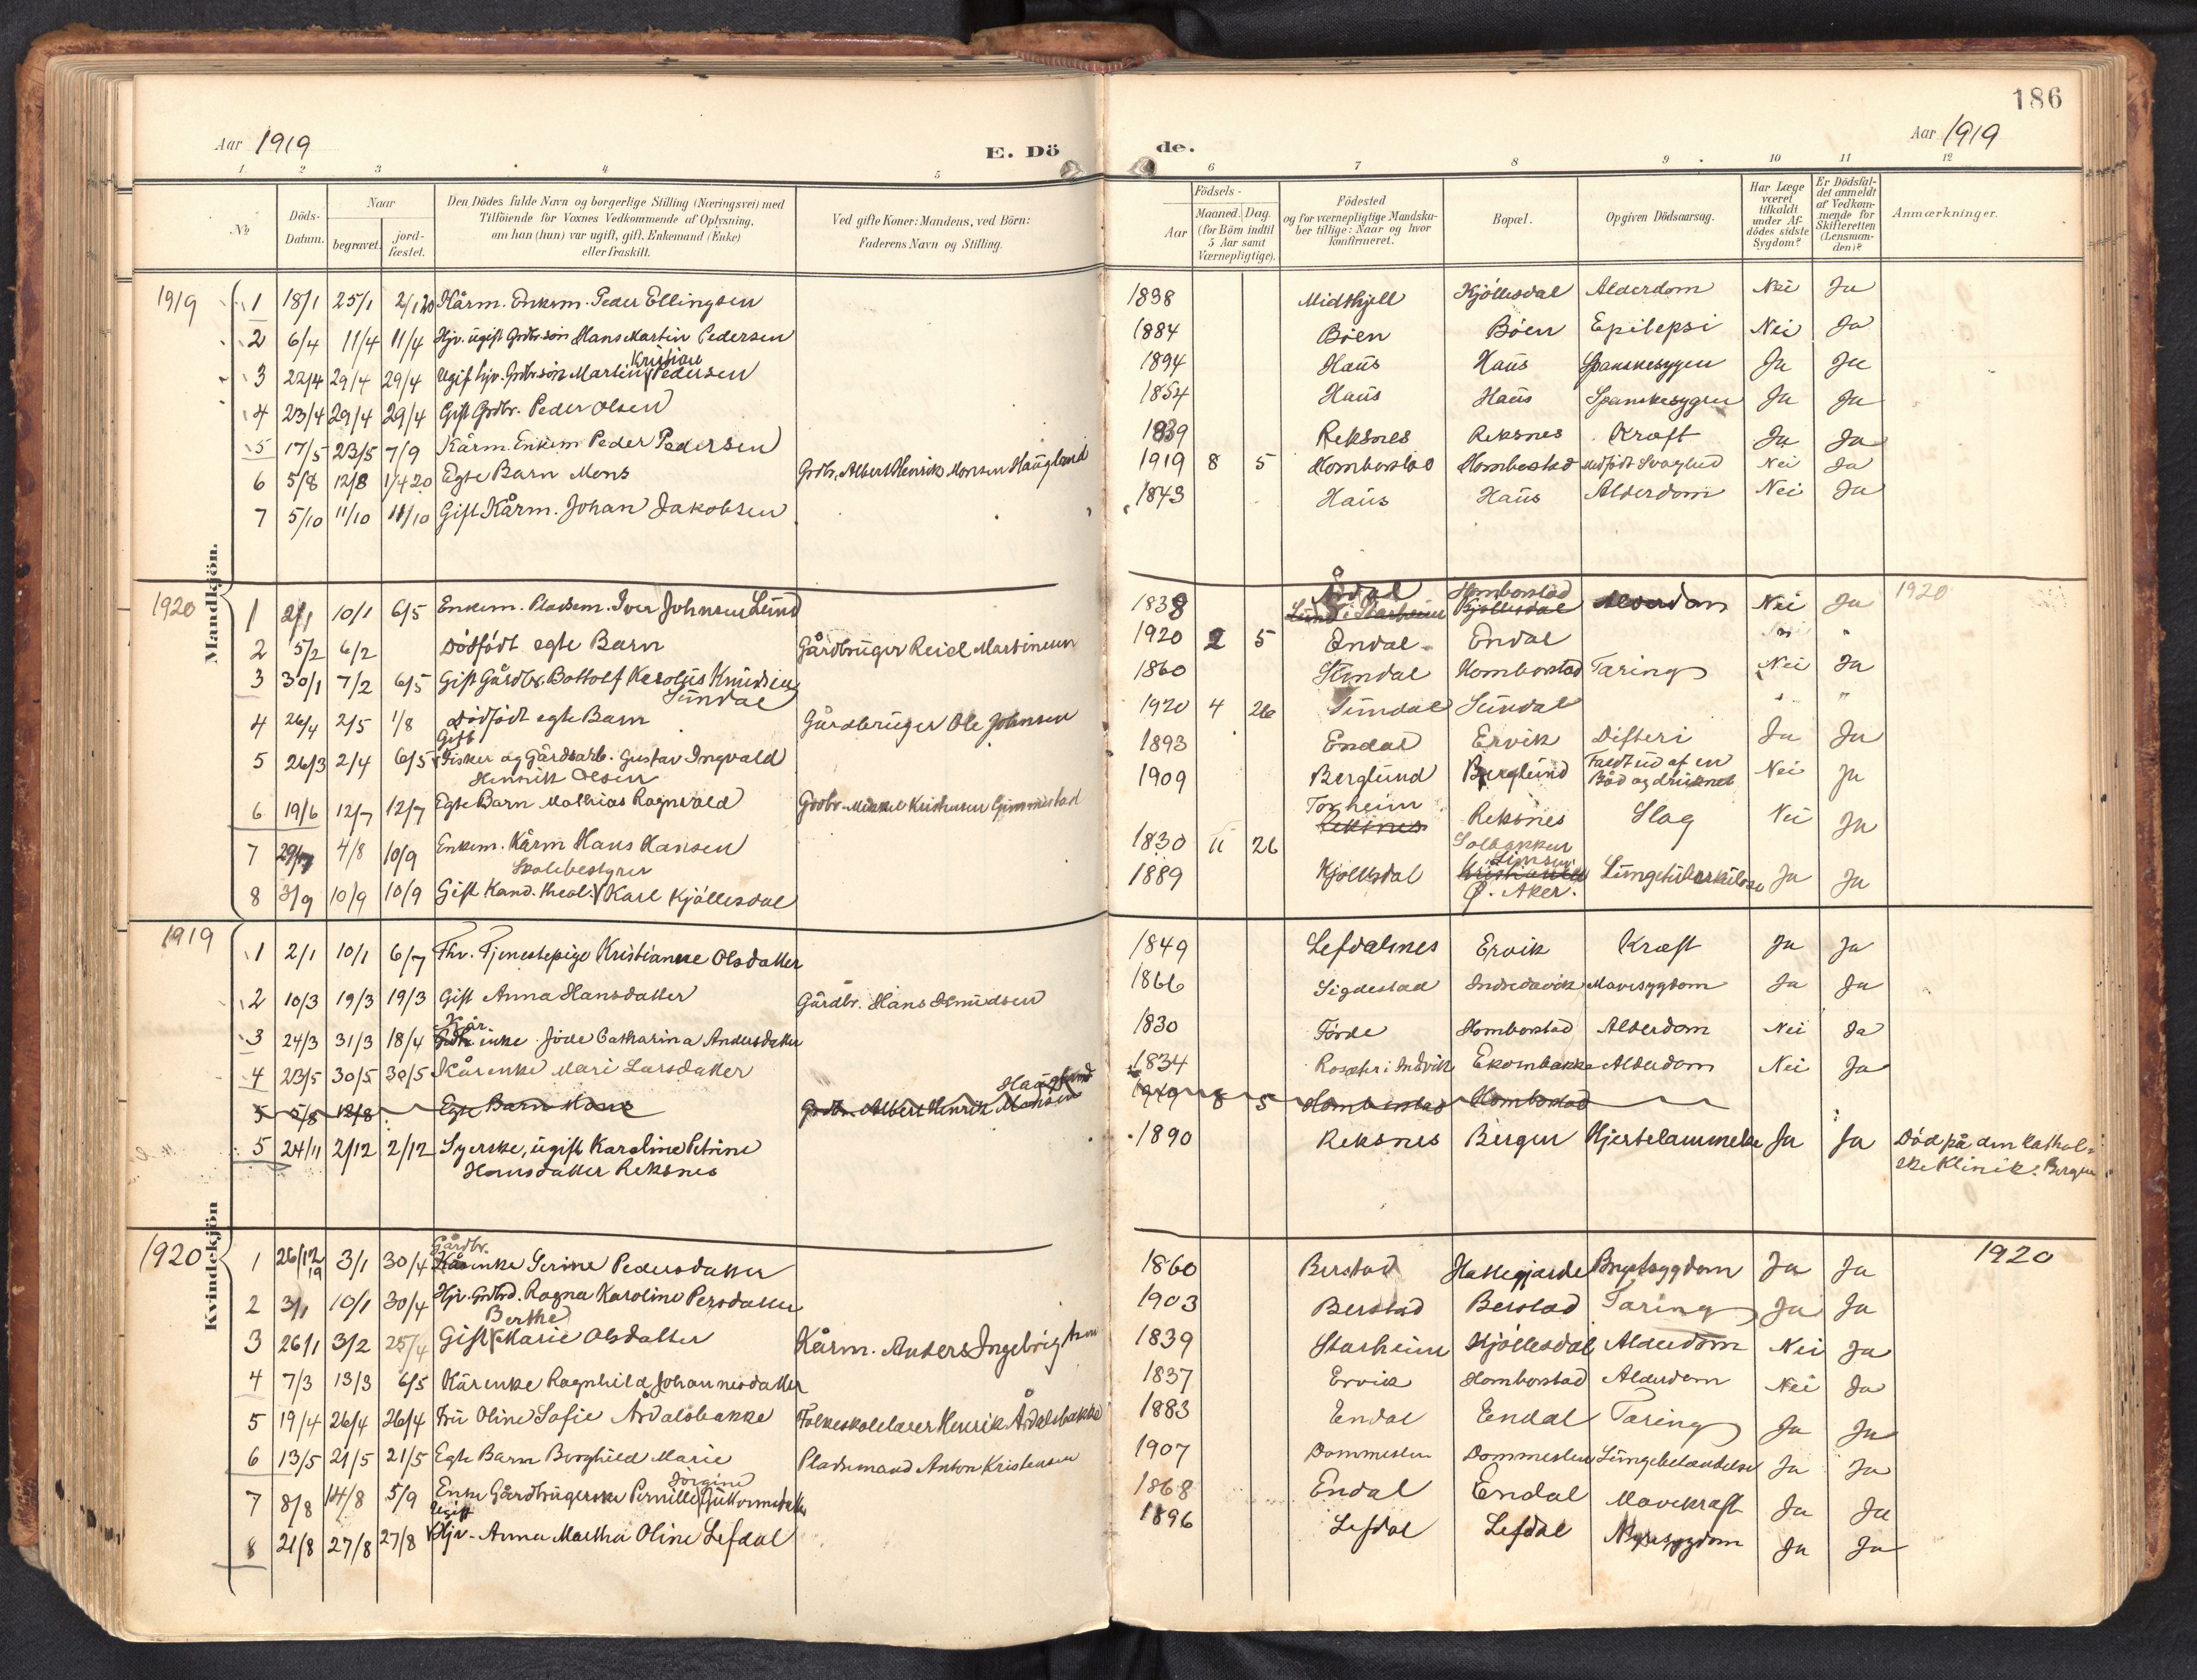 186
Aar 1919
E. Dö
de.
Aar 1919
1 2 3 4 5 6 7 8 9 10 11 12
No
Döds-Datum.
Naar
begravet.
jord-fæstet.
Den Dödes fulde Navn og borgerlige Stilling (Næringsvei) med
Tilföiende for Voxnes Vedkommende af Oplysning,
om han (hun) var ugift, gift, Enkemand (Enke)
eller fraskilt.
Ved gifte Koner: Mandens, ved Börn:
Faderens Navn og Stilling.
Födsels-
Aar
Maaned. Dag.
(for Börn indtil
5 Aar samt
Værnepligtige).
Födested
og for værnepligtige Mandska-
ber tillige: Naar og hvor
konfirmeret.
Bopæl.
Opgiven Dödsaarsag.
Har Læge
været
tilkaldt
under Af-
dödes sidste
Sygdom?
Er Dödsfal-
det anmeldt
af Vedkom-
mende for
Skifteretten
(Lensman-
den)?
Anmærkninger.
Mandkjön.
1919
1 18/1 25/1 2/1 20 Kårm. Enkem. Peder Ellingsen 1838 Midthjell Kjöllesdal Alderdom Nei Ja
2 6/4 11/4 11/4 Hjv. ugift Grdbr.sön Hans Martin Pedersen 1884 Böen Böen Epilepsi Nei Ja
Kristian
3 22/4 29/4 29/4 Ugift hjv. Grdbr.sön Martin Pedersen 1894 Haus Haus Spanskesygen Ja Ja
4 23/4 29/4 29/4 Gift Grdbr. Peder Olsen 1854 Haus Haus Spanskesygen Ja Ja
5 17/5 23/5 7/9 Kårm. Enkem Peder Pedersen 1839 Reksnes Reksnes Kræft Ja Ja
6 5/8 12/8 1/4 20 Egte Barn Mons Grdbr. Albert Henrik Monsen Haugland 1919 8 5 Homborstad Hombostad Medfödt Svaghed Nei Ja
7 5/10 11/10 11/10 Gift Kårm. Johan Jakobsen 1843 Haus Haus Alderdom Nei Ja
1920
1 2/1 10/1 6/5 Enkem. Pladsem. Iver Johnsen Lund 1838 Årdal Lund i Starheim Homborstad Kjöllesdal Alderdom Nei Ja 1920
2 5/2 6/2 Dödfödt egte Barn Gårdbruger Reiel Martinsen 1920 2 5 Endal Endal " "
3 30/1 7/2 6/5 Gift Gårdbr. Bottolf Karolus Knudsen 1860 Sundal Homborstad Tæring Nei Ja
Sundal
4 26/4 2/5 1/8 Dödfödt egte Barn Gårdbruger Ole Johnsen 1920 4 26 Sundal Sundal " "
Gift
5 26/3 2/4 6/5 Fisker og Gårdsarb. Gustav Ingvald 1893 Endal Ervik Difteri Ja Ja
Henrik Olsen
6 19/6 12/7 12/7 Egte Barn Mathias Ragnvald Grdbr. Mikkel Kristensen Gimmestad 1909 Berglund Berglund Faldt ud af en Båd og druknet Nei Ja
7 29/7 4/8 10/9 Enkem. Kårm Hans Hansen 1830 11 26 Torheim Reksnes Reksnes Slag Nei Ja
Skolebestyrer
8 3/9 10/9 10/9 Gift Kand. theol. Karl Kjöllesdal 1889 Kjöllesdal Solbakken Kristiania Ö. Aker. Lungetuberkulose Ja Ja
Kvindekjön
1919
1 2/1 10/1 6/7 Fhv. Tjenestepige Kristianne Olsdatter 1849 Lefdalsnes Ervik Kræft Ja Ja
2 10/3 19/3 19/3 Gift Anna Hansdatter Gårdbr. Hans Knudsen 1866 Sigdestad Indredavik Mavesygdom Ja Ja
Kår
3 24/3 31/3 18/4 enke Catharina Andersdatter 1830 Förde Homborstad Alderdom Nei Ja
4 23/5 30/5 30/5 Kårenke Mari Larsdatter 1834 Rosæter i Indvik Ekornbakke Alderdom Nei Ja
5 5/8 12/8 Egte Barn Mons Grdbr. Albert Henrik Monsen Haugland 1919 8 5 Homborstad Hombstad
5 24/11 2/12 2/12 Syerske, ugift Karoline Petrine 1890 Reksnes Bergen Hjertelammelse Ja Ja Död på den kathol-
Hansdatter Reksnes ske Klinik. Bergen
1920
Gårdbr.
1 26/12 19 3/1 30/4 Kårenke Serine Pedersdatter 1860 Berstad Hallegjærde Brystsygdom Ja Ja 1920
2 3/1 10/1 30/4 Hjv. Grdbrd. Ragna Karoline Persdatter 1903 Berstad Berstad Tæring Ja Ja
Berthe
3 26/1 3/2 25/4 Gift Marie Olsdatter Kårm. Anders Ingebrigtsen 1839 Starheim Kjöllesdal Alderdom Nei Ja
4 7/3 13/3 6/5 Kårenke Ragnhild Johannesdatter 1837 Ervik Homborstad Alderdom Nei Ja
5 19/4 26/4 26/4 Fru Oline Sofie Årdalsbakke Folkeskolelærer Henrik Årdalsbakke 1883 Endal Endal Tæring Ja Ja
6 13/5 21/5 21/5 Egte Barn Borghild Marie Pladsemand Anton Kristensen 1907 Dommesten Dommesten Lungebetændelse Ja Ja
Jörgine
7 8/8 14/8 5/9 Enke Gårdbrugerske Pernille Guttormsdatter 1868 Endal Endal Mavekræft Ja Ja
Ugift
8 21/8 27/8 27/8 Hjv. Anna Martha Oline Lefdal 1896 Lefdal Lefdal Nyresygdom Ja Ja